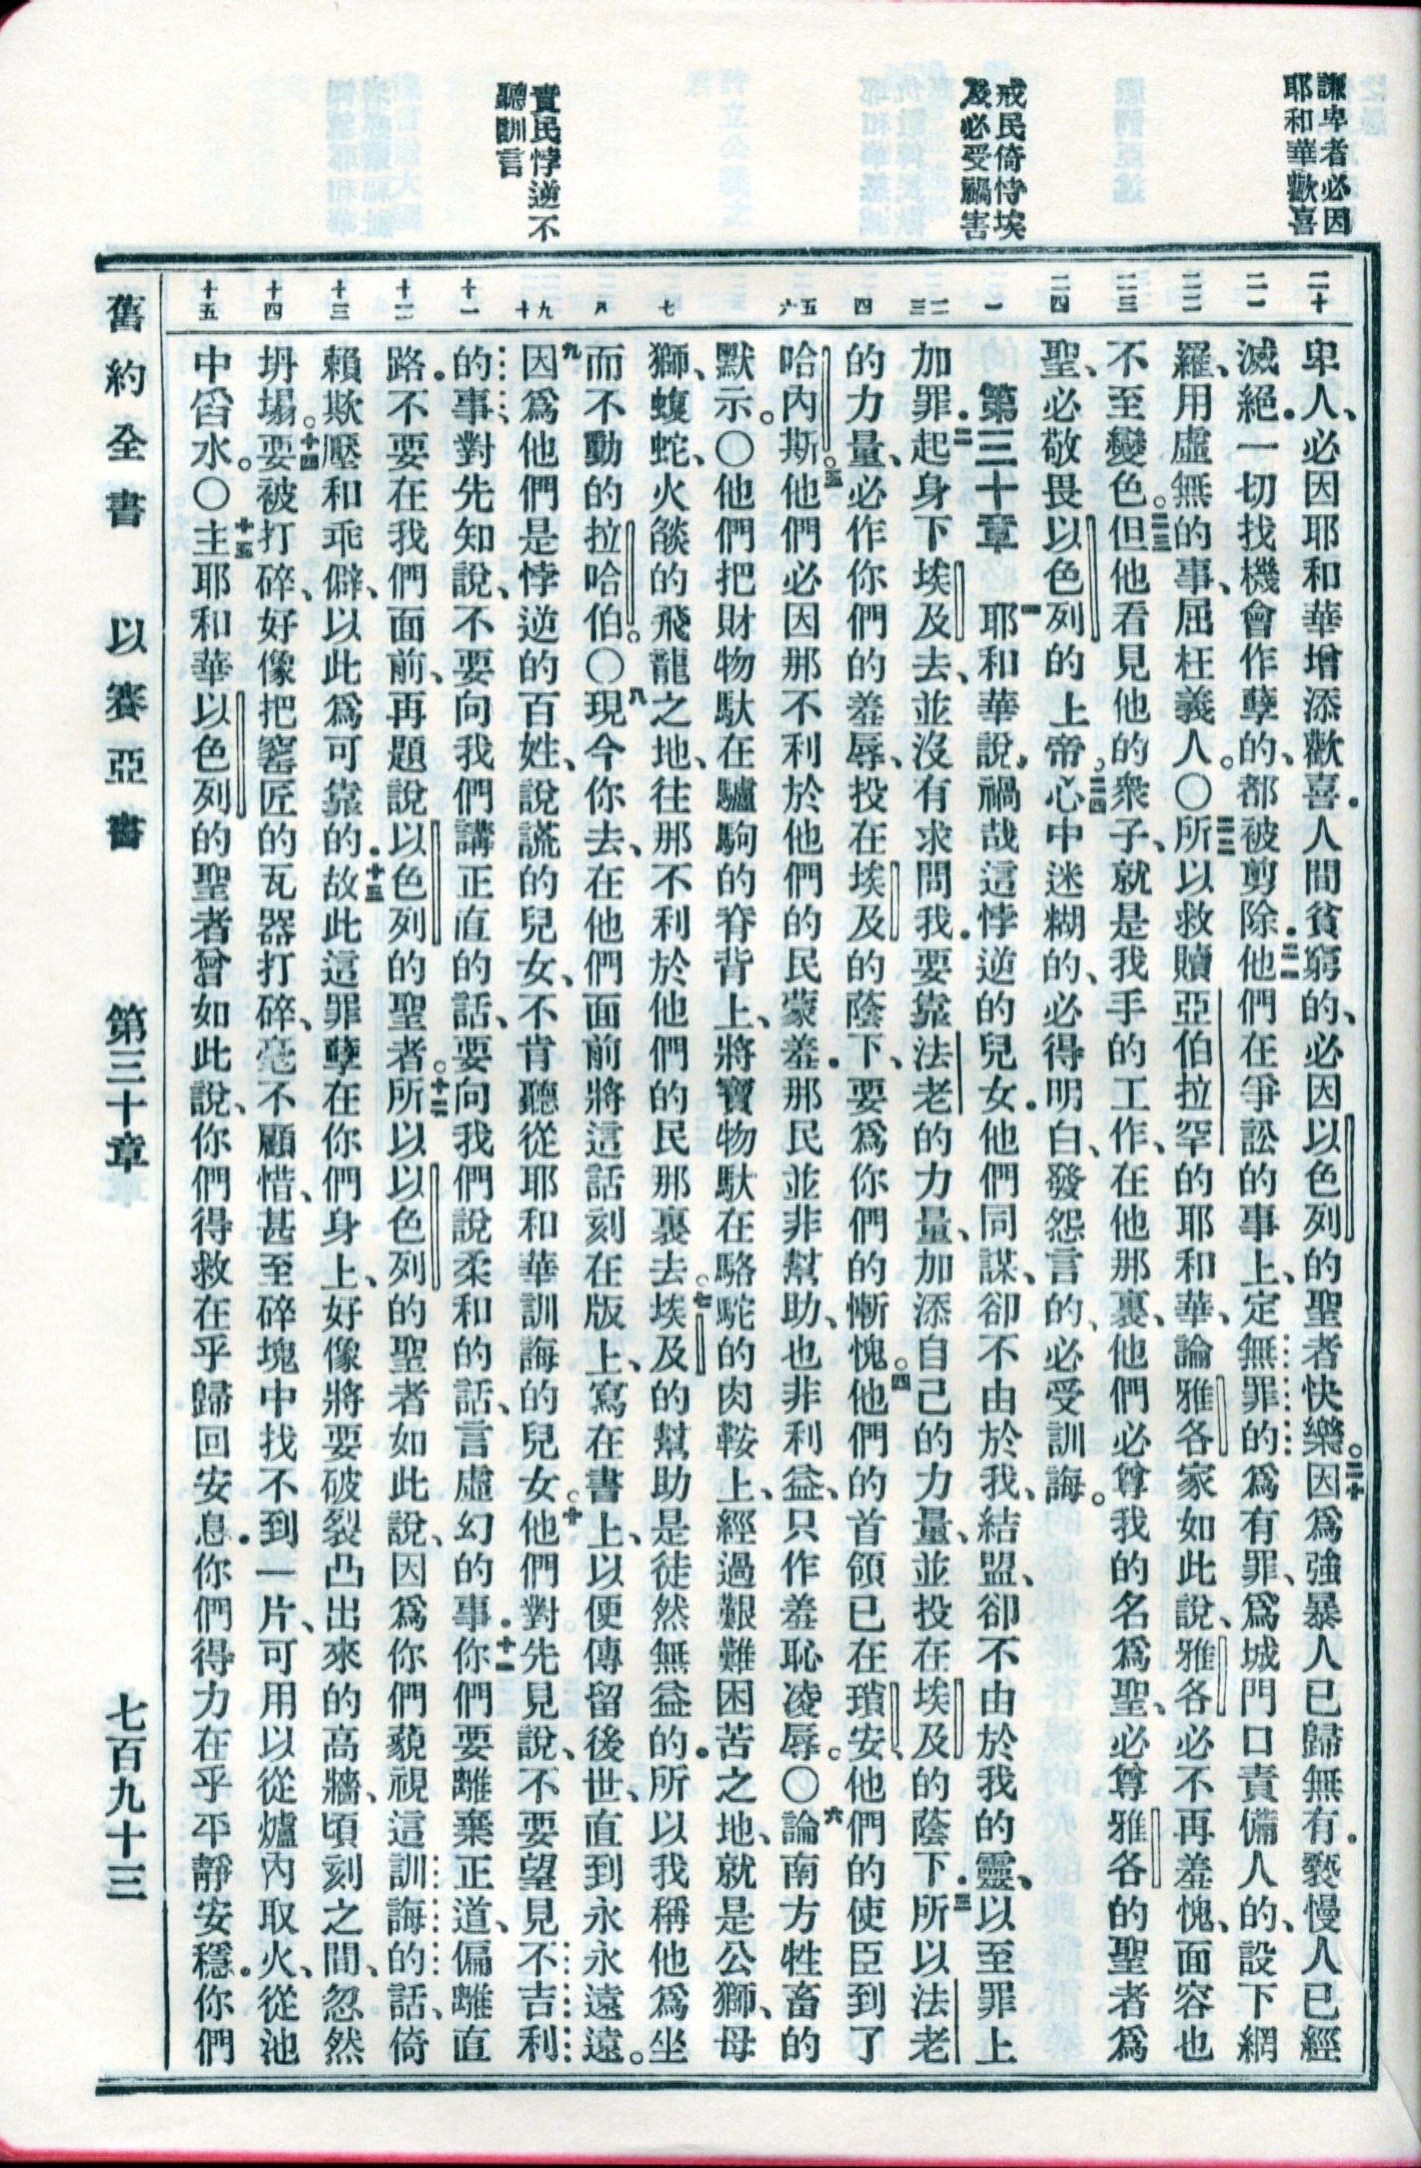 謙卑者必因
耶和華歡喜
戒民倚恃埃
及必受禍害
責民悖逆不
聽訓言
二十
二一
二二
二三
二四
一
二三
四
五六
七
八
九十
十一
十二
十三
十四
十五
卑人、必因耶和華增添歡喜．人間貧窮的、必因以色列的聖者快樂。二十因爲強暴人已歸無有．褻慢人已經
滅絕．一切找機會作孽的、都被剪除．二一他們在爭訟的事上、定無罪的爲有罪、爲城門口責備人的、設下網
羅、用虛無的事、屈枉義人。〇二二所以救贖亞伯拉罕的耶和華、論雅各家如此說、雅各必不再羞愧、面容也
不至變色。二三但他看見他的衆子、就是我手的工作、在他那裏、他們必尊我的名爲聖、必尊雅各的聖者爲
聖、必敬畏以色列的上帝。二四心中迷糊的、必得明白、發怨言的、必受訓誨。
第三十章　一耶和華說、禍哉這悖逆的兒女．他們同謀、卻不由於我、結盟、卻不由於我的靈、以至罪上
加罪．二起身下埃及去、並沒有求問我．要靠法老的力量、加添自己的力量、並投在埃及的蔭下．三所以法老
的力量、必作你們的羞辱、投在埃及的蔭下、要爲你們的慚愧。四他們的首領已在瑣安、他們的使臣到了
哈內斯。五他們必因那不利於他們的民蒙羞．那民並非幫助、也非利益、只作羞恥凌辱。〇六論南方牲畜的
默示。〇他們把財物馱在驢駒的脊背上、將寶物馱在駱駝的肉鞍上、經過艱難困苦之地、就是公獅、母
獅、蝮蛇、火燄的飛龍之地、往那不利於他們的民那裏去。七埃及的幫助是徒然無益的．所以我稱他爲坐
而不動的拉哈伯。〇八現今你去、在他們面前將這話刻在版上、寫在書上、以便傳留後世、直到永永遠遠。
九因爲他們是悖逆的百姓、說謊的兒女、不肯聽從耶和華訓誨的兒女。十他們對先見說、不要望見不吉利
的事、對先知說、不要向我們講正直的話、要向我們說柔和的話、言虛幻的事．十一你們要離棄正道、偏離直
路．不要在我們面前、再題說以色列的聖者。十二所以以色列的聖者如此說、因爲你們藐視這訓誨的話、倚
賴欺壓和乖僻、以此爲可靠的．十三故此這罪孽在你們身上、好像將要破裂凸出來的高牆、頃刻之間、忽然
坍塌。十四要被打碎、好像把窰匠的瓦器打碎、毫不顧惜、甚至碎塊中找不到一片、可用以從爐內取火、從池
中舀水。〇十五主耶和華以色列的聖者曾如此說、你們得救在乎歸回安息．你們得力在乎平靜安穩．你們
舊約全書　以賽亞書　第三十章　七百九十三